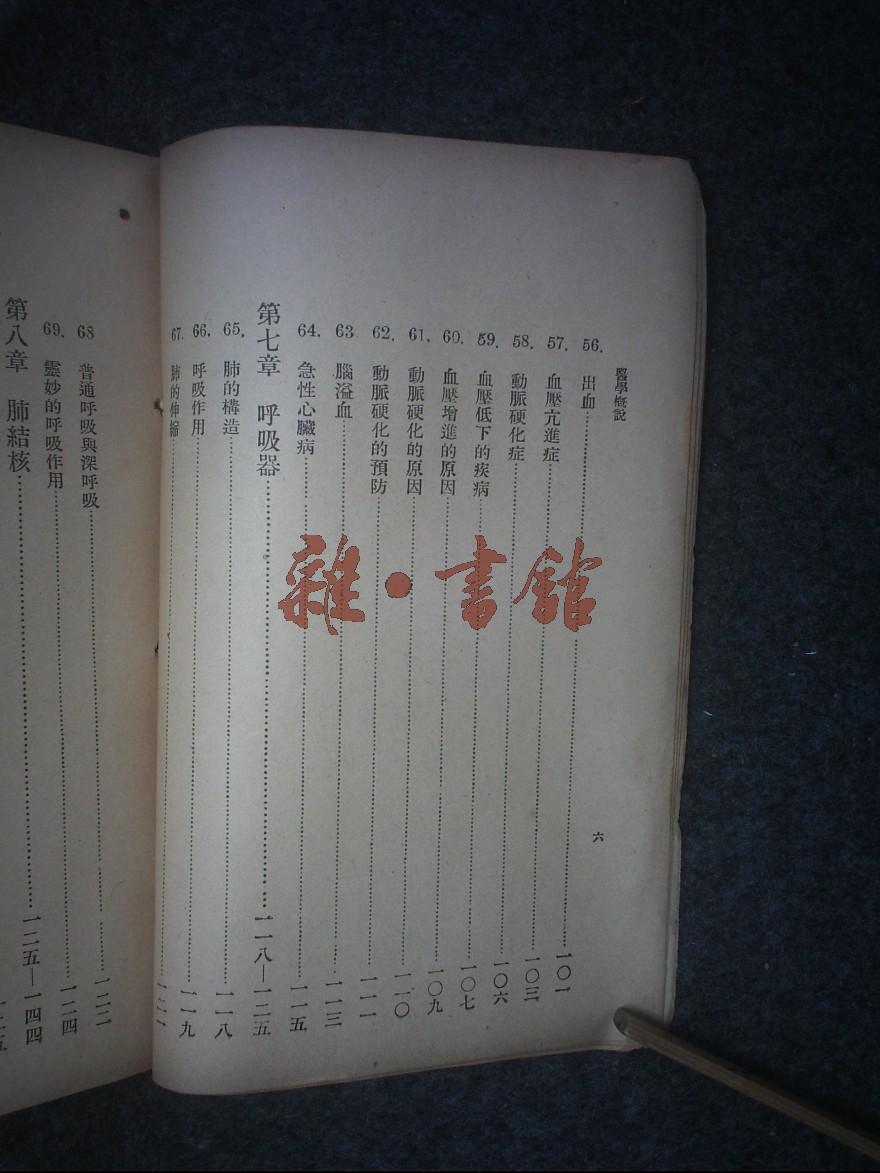 醫學概說
六
56. 出血……一〇一
57. 血壓亢進症……一〇三
58. 動脈硬化症……一〇六
59. 血壓低下的疾病……一〇七
60. 血壓增進的原因……一〇九
61. 動脈硬化的原因……一一〇
62. 動脈硬化的預防……一一一
63. 腦溢血……一一三
64. 急性心臟病……一一五
第七章 呼吸器……一一八—一二五
65. 肺的構造……一一八
66. 呼吸作用……一一九
67. 肺的伸縮……一二一
68 普通呼吸與深呼吸……一二二
69. 靈妙的呼吸作用……一二四
第八章 肺結核……一二五—一四四
一二五
雜·書館